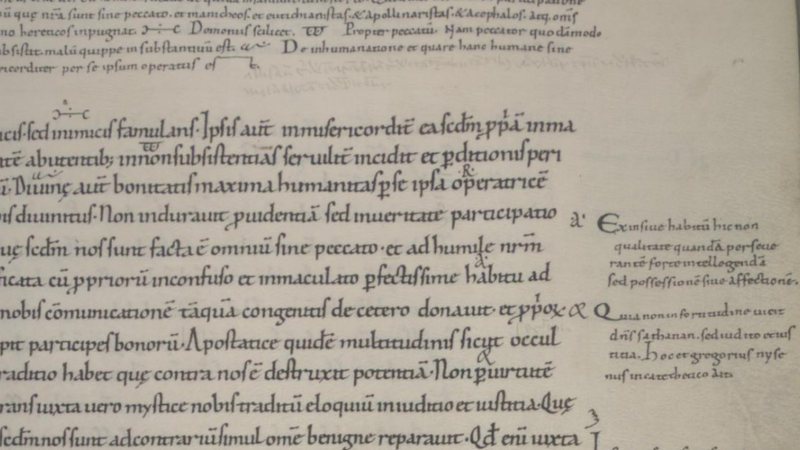 ũ quę nr̃a sunt sine peccato. et manicheos. et eutichianistas. & Apollinaristas. & Acephalos. atq. om̃s
no hereticos inpugnat. Domonus scilicet. Propter peccatũ. Nam peccator quo dãmodo
bsistit. malũ quippe in substantivũ est. De inhumanatione et quare hanc humane sine
ricorditer per se ipsum operatus es t.
icis. sed inimicis famulans. Ipsis aut̃ inmisericordit̃ ea scdm̃ pp̃ã inma
tẽ abutentib; in non subsistentiãs servilit̃ incidit et p̃ditionis peri
ĩ. Diuinę aut̃ bonitatis maxima humanitas p̃ se ipsa operatricẽ
is divinitus. Non induravit p̃videntiã sed in veritate participatio
uę scdm̃ nos sunt facta ẽ omniũ sine peccato. et ad humile nr̃m
ficata cũ p̃priorũ inconfuso et inmaculato p̃fectissime habitu ad
nobis cõmunicationẽ tãqũa congentis de cetero donavit. et pp̃ox &
pit participes bonorũ. Apostatice quidẽ multitudinis sicut occul
raditio habet quę contra nos ẽ destruxit potentiã. Non p̃ virtutẽ
rans iuxta uero mystice nobis traditũ eloquiũ in iuditio et iustitia. Quę
scdm̃ nos sunt ad contrariũ simul om̃e benigne reparavit. Qd̃ eni uixta
a. Ex insiue habitũ hic non
qualitatẽ quandã. perseue
rantẽ forte intellegendã
sed possessionẽ siue affectionẽ.
Quia non in fortitudine uicit
dn̄s sathanan. sed iuditio et ius
titia. Hoc et gregorius nyse
nus in catechetico ait.